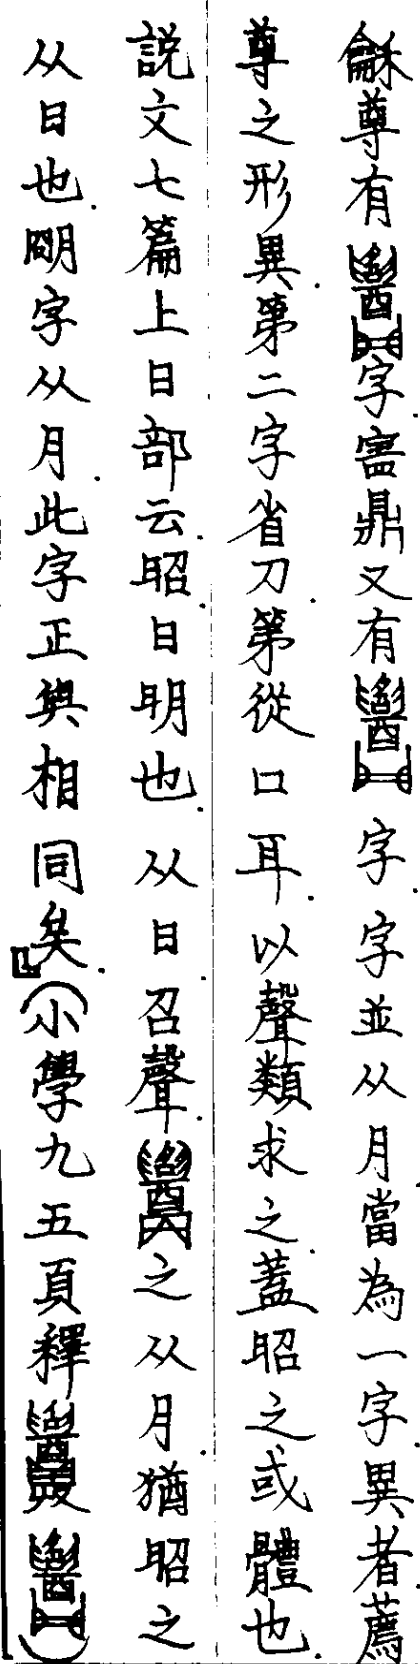 龢尊有字寋鼎又有字字並从月當為一字異者薦
尊之形異.第二字省刀.第從口耳.以聲類求之.蓋昭之或體也.
説文七篇上日部云.昭日明也.从日召聲.之从月猶昭之
从日也.朙字从月.此字正與相同矣.」(小學九五頁釋)